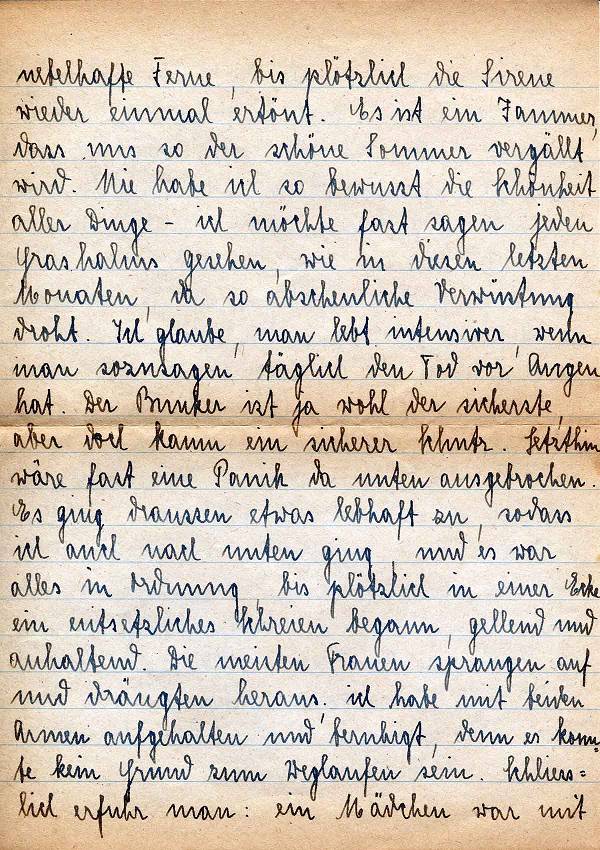 nebelhafte Ferne, bis plötzlich die Sirene
wieder einmal ertönt. Es ist ein Jammer,
dass uns so der schöne Sommer vergällt
wird. Nie habe ich so bewusst die Schönheit
aller Dinge - ich möchte fast sagen jeden
Grashalms gesehen, wie in diesen letzten
Monaten, da so abscheuliche Verwüstung
droht. Ich glaube, man lebt intensiver wenn
man sozusagen täglich den Tod vor Augen
hat. Der Bunker ist ja wohl der sicherste,
aber doch kaum ein sicherer Schutz. Letzthin
wäre fast eine Panik da unten ausgebrochen.
Es ging draussen etwas lebhaft zu, sodass
ich auch nach unten ging, und es war
alles in Ordnung, bis plötzlich in einer Ecke
ein entsetzliches Schreien begann, gellend und
anhaltend. Die meisten Frauen sprangen auf
und drängten heraus, ich habe mit beiden
Armen aufgehalten und beruhigt, denn es konn-
te kein Grund zum Weglaufen sein. Schliess=
lich erfuhr man: ein Mädchen war mit